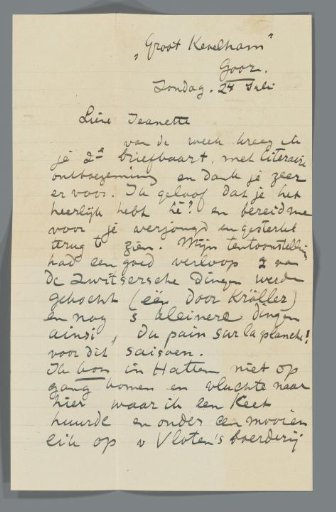 „Groot Kevelham"
Goor.
Zondag. 24 Juli
Lieve Jeanette
van de week kreeg ik
je 2e briefkaart, met literaire
ontboezeming en dank je zeer
er voor. Ik geloof dat je het
heerlijk hebt hè? en bereid me
voor je verjongd en gesterkt
terug te zien. Mijn tentoonstelling
had een goed verloop 2 van
de Zwitsersche dingen werden
gekocht (één door Kröller)
en nog 3 kleinere dingen
ainsi, du pain sur la planche!
voor dit saisoen.
Ik kon in Hattem niet op
gang komen en vluchtte naar
hier waar ik een Keet
huurde en onder een mooien
eik op v Vloten's boerderij